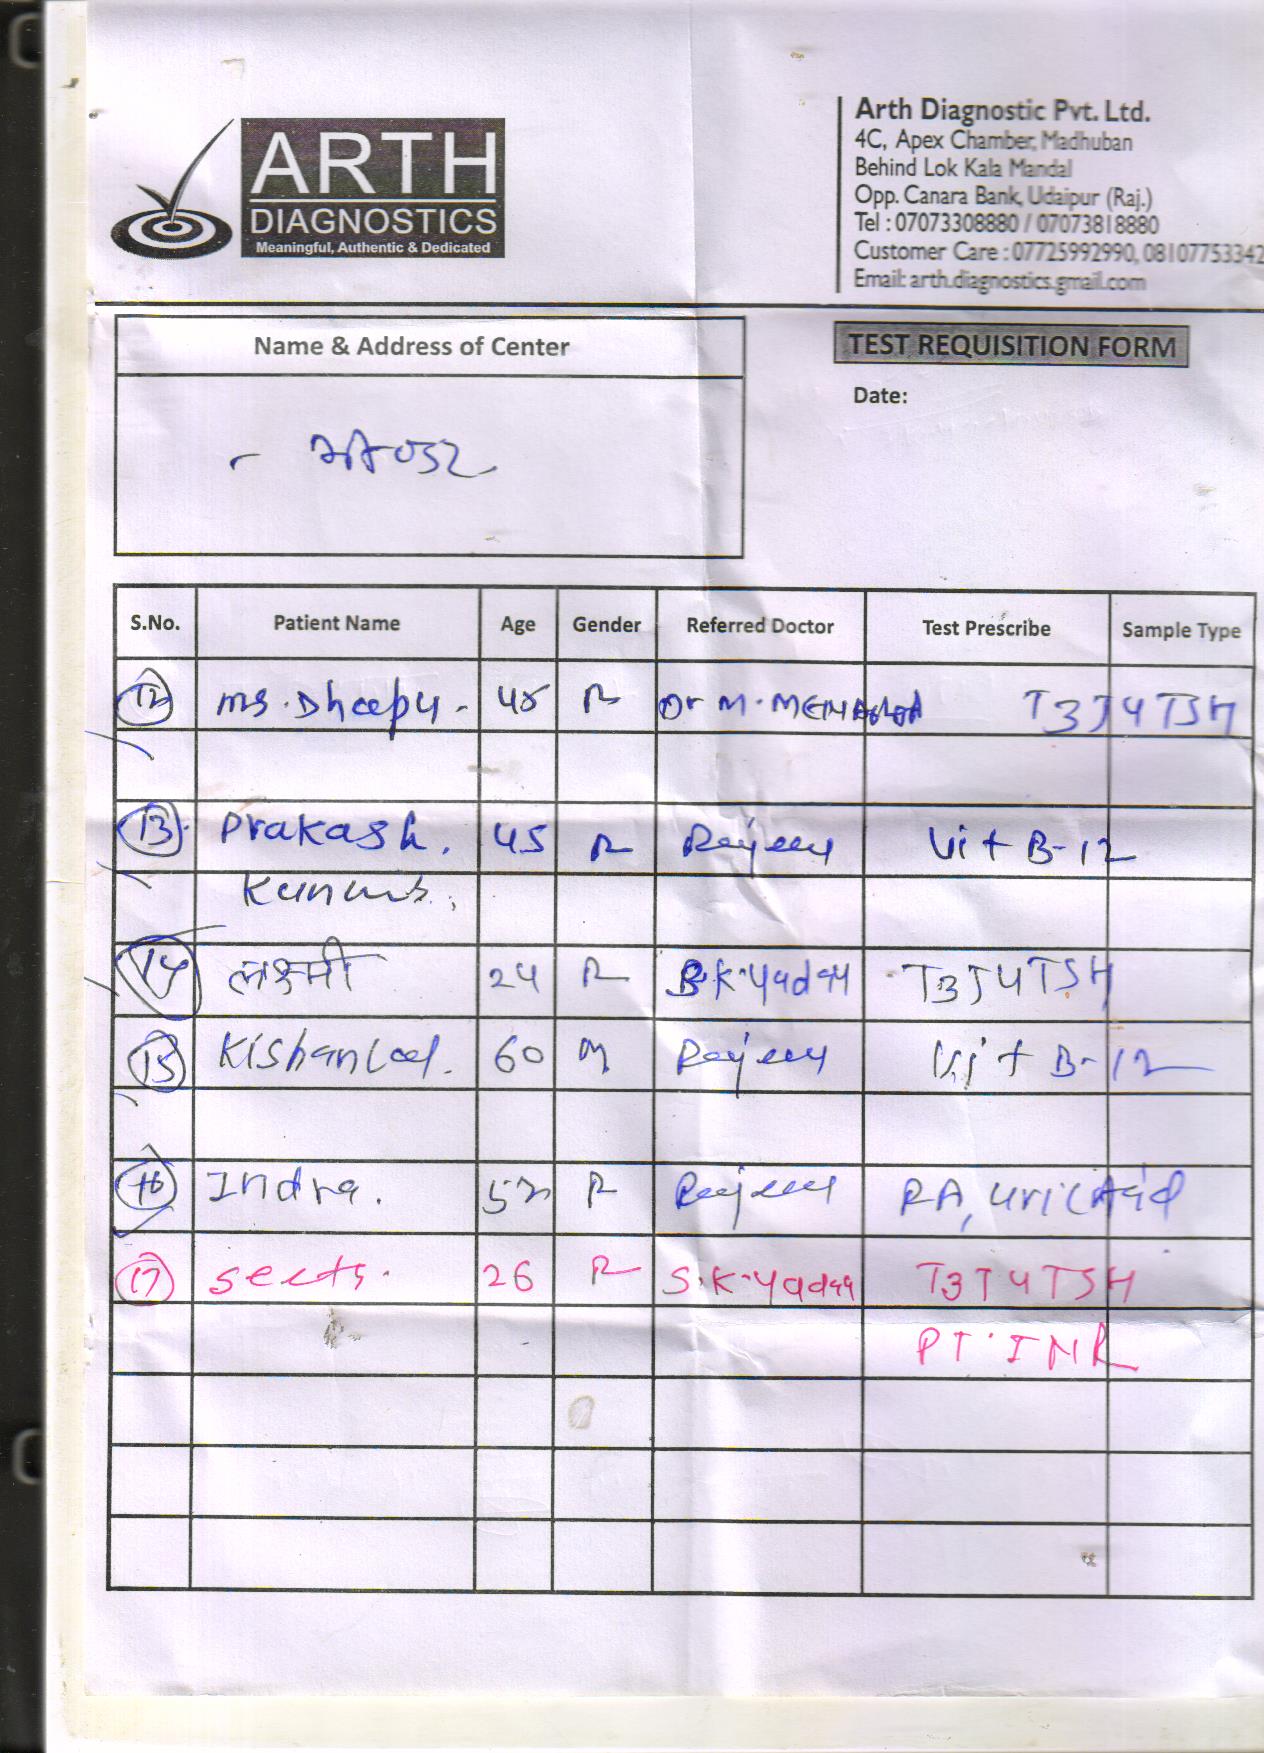 ARTH
DIAGNOSTICS
Meaningful, Authentic & Dedicated
Arth Diagnostic Pvt. Ltd.
4C, Apex Chamber, Madhuban
Behind Lok Kala Mandal
Opp. Canara Bank, Udaipur (Raj.)
Tel : 07073308880 / 07073818880
Customer Care : 07725992990, 08107753342
Email: arth.diagnostics.gmail.com
Name & Address of Center
TEST REQUISITION FORM
Date:
S.No. Patient Name Age Gender Referred Doctor Test Prescribe Sample Type
12 Ms. Dheepu - 48 Dr M. T3T4TSH
13 Prakash. 45 Rajeev Vit B-12
14 लक्ष्मी 24 S.K. Yadav T3T4TSH
15 Kishan Lal. 60 M Rajeev Vit B-12
16 Indra. 52 Rajeev RA, Uric Acid
17 26 S.K. Yadav T3T4TSH
PT. INR